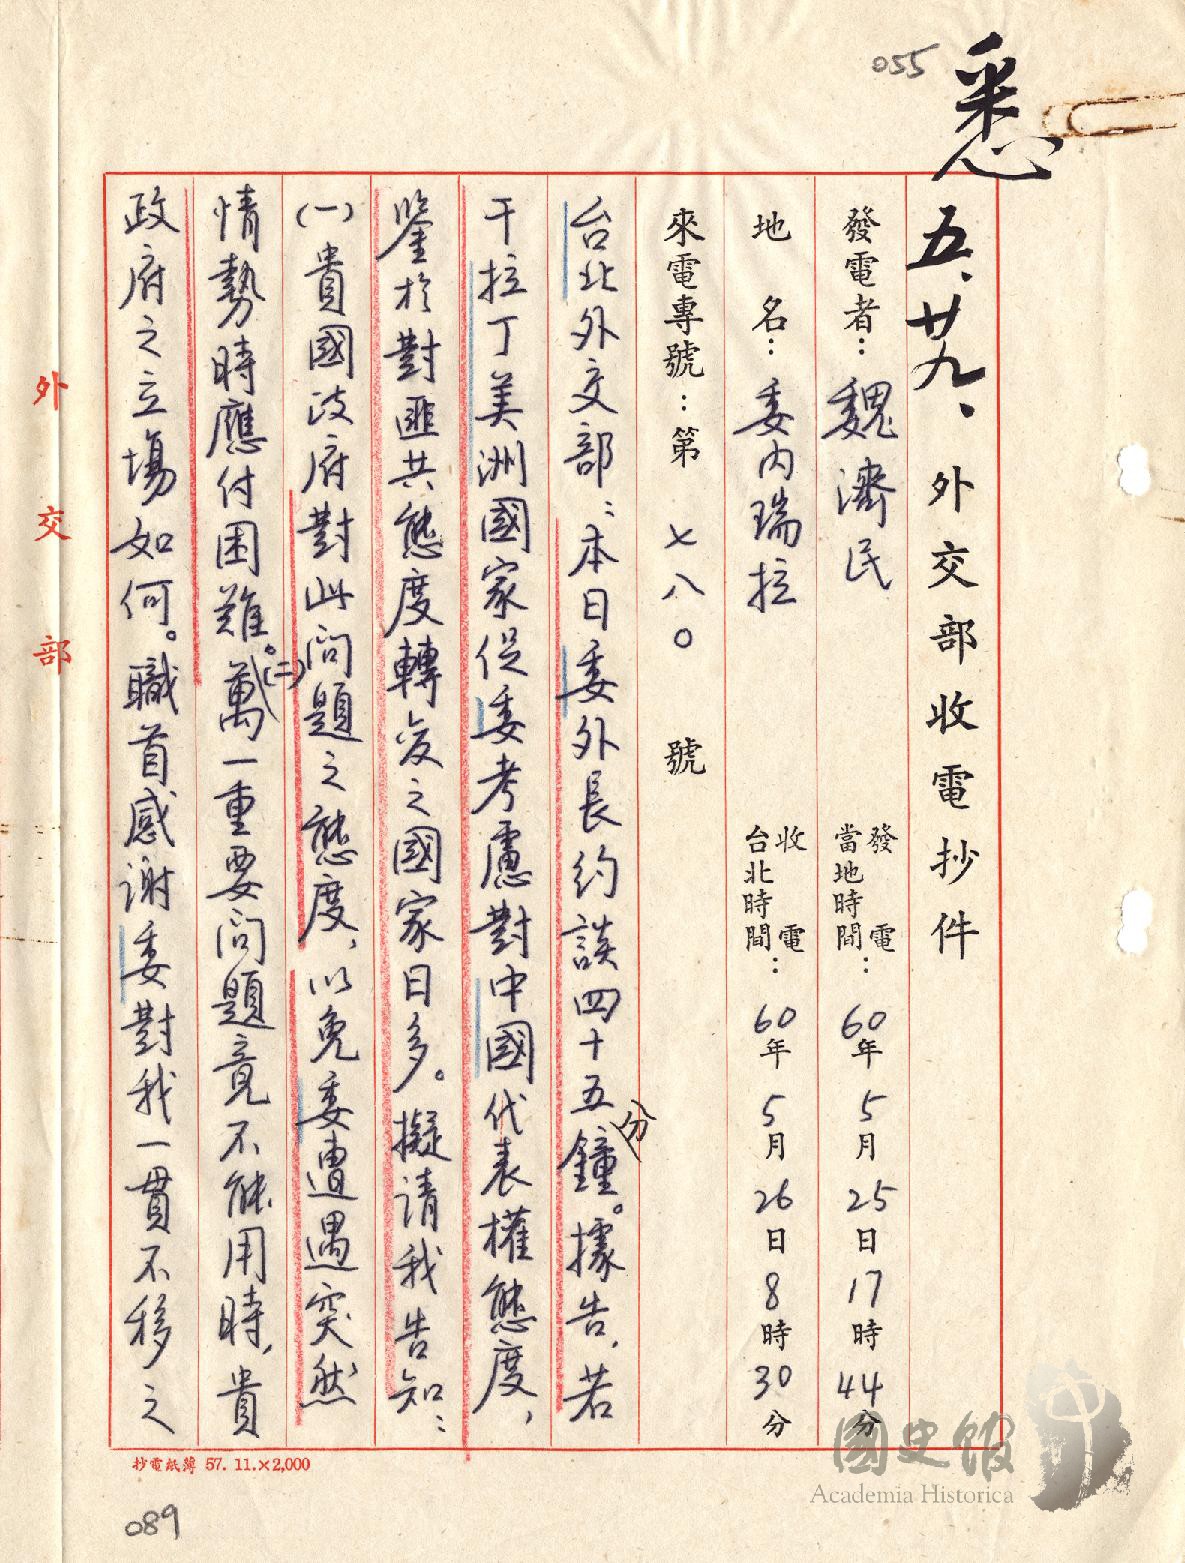 055
悉
五、廿九、
外交部收電抄件
發電者：魏濟民
發電
當地時間：60年5月25日17時44分
地名：委內瑞拉
收電
台北時間：60年5月26日8時30分
來電專號：第七八〇號
台北外交部：本日委外長約談四十五分鐘。據告，若
干拉丁美洲國家促委考慮對中國代表權態度，
鑒於對匪共態度轉变之國家日多。擬請我告知：
(一)貴國政府對此问題之態度，以免委遭遇突然
情勢時應付困難。(二)萬一重要问題竟不能用時，貴
政府之立場如何。職首感谢委對我一貫不移之
外交部
抄電紙簿 57. 11.×2,000
089
國史館
Academia Historica